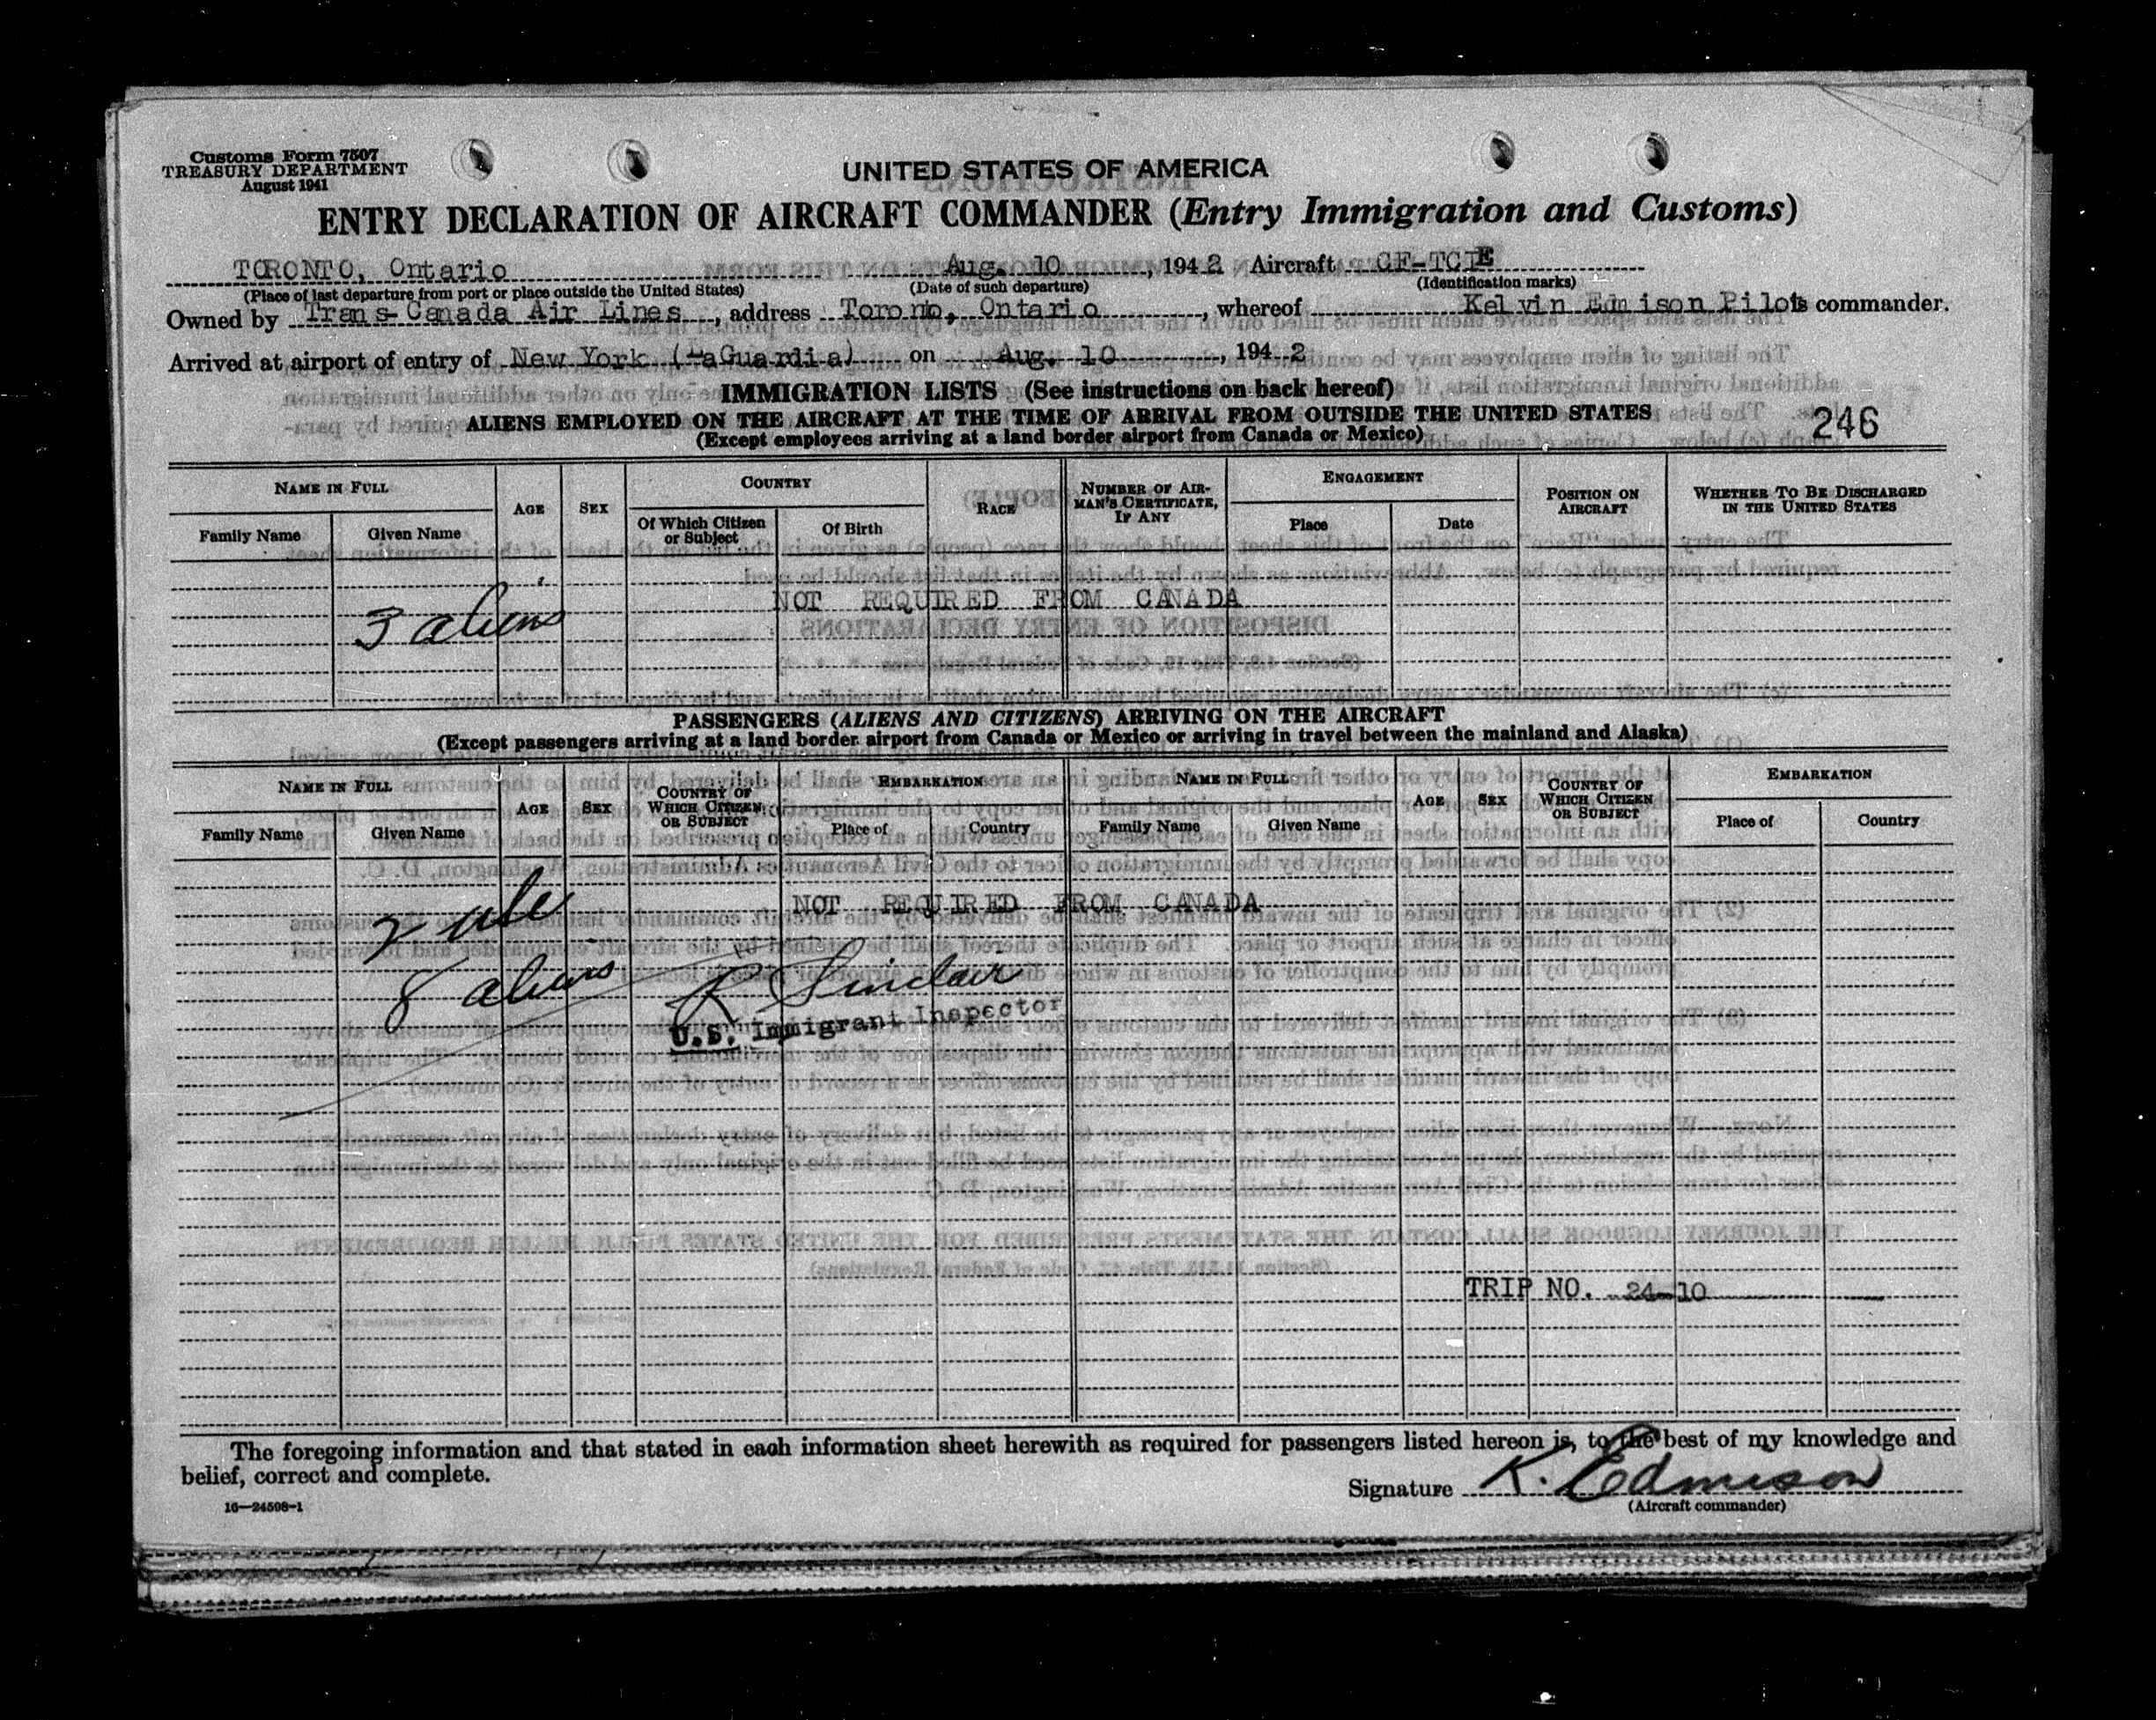 Customs Form 7507
TREASURY DEPARTMENT
August 1941
UNITED STATES OF AMERICA
ENTRY DECLARATION OF AIRCRAFT COMMANDER (Entry Immigration and Customs)
TORONTO, Ontario Aug. 10, 1942 Aircraft
(Place of last departure from port or place outside the United States) (Date of such departure) (Identification marks)
Owned by Trans-Canada Air Lines, address Toronto, Ontario, whereof Kelvin Edmison Pilot is commander.
Arrived at airport of entry of New York (LaGuardia) on Aug. 10, 1942
IMMIGRATION LISTS (See instructions on back hereof)
ALIENS EMPLOYED ON THE AIRCRAFT AT THE TIME OF ARRIVAL FROM OUTSIDE THE UNITED STATES
246
(Except employees arriving at a land border airport from Canada or Mexico)
NAME IN FULL AGE SEX COUNTRY RACE NUMBER OF AIRMAN'S CERTIFICATE, IF ANY ENGAGEMENT POSITION ON AIRCRAFT WHETHER TO BE DISCHARGED IN THE UNITED STATES
Family Name Given Name Of Which Citizen or Subject Of Birth Place Date
NOT REQUIRED FROM CANADA
3 aliens
PASSENGERS (ALIENS AND CITIZENS) ARRIVING ON THE AIRCRAFT
(Except passengers arriving at a land border airport from Canada or Mexico or arriving in travel between the mainland and Alaska)
NAME IN FULL AGE SEX COUNTRY OF WHICH CITIZEN OR SUBJECT EMBARKATION NAME IN FULL AGE SEX COUNTRY OF WHICH CITIZEN OR SUBJECT EMBARKATION
Family Name Given Name Place of Country Family Name Given Name Place of Country
NOT REQUIRED FROM CANADA
2
8 aliens
R Sinclair
U.S. Immigrant Inspector
TRIP NO. 24-10
The foregoing information and that stated in each information sheet herewith as required for passengers listed hereon is, to the best of my knowledge and
belief, correct and complete.
Signature K. Edmison
(Aircraft commander)
16—24508-1